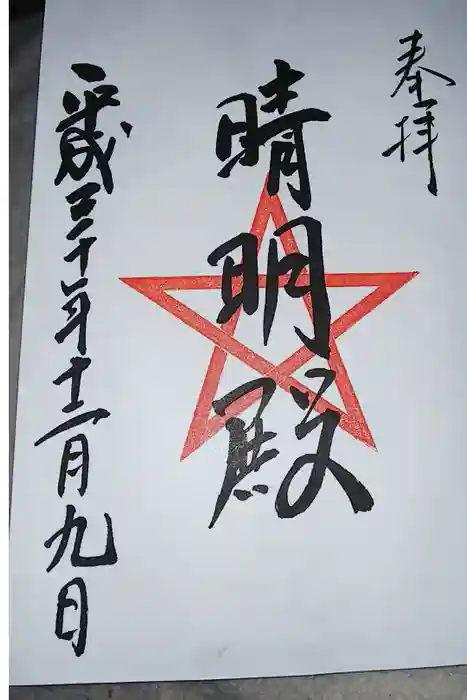 奉拝
晴明殿
平成三十年十二月九日